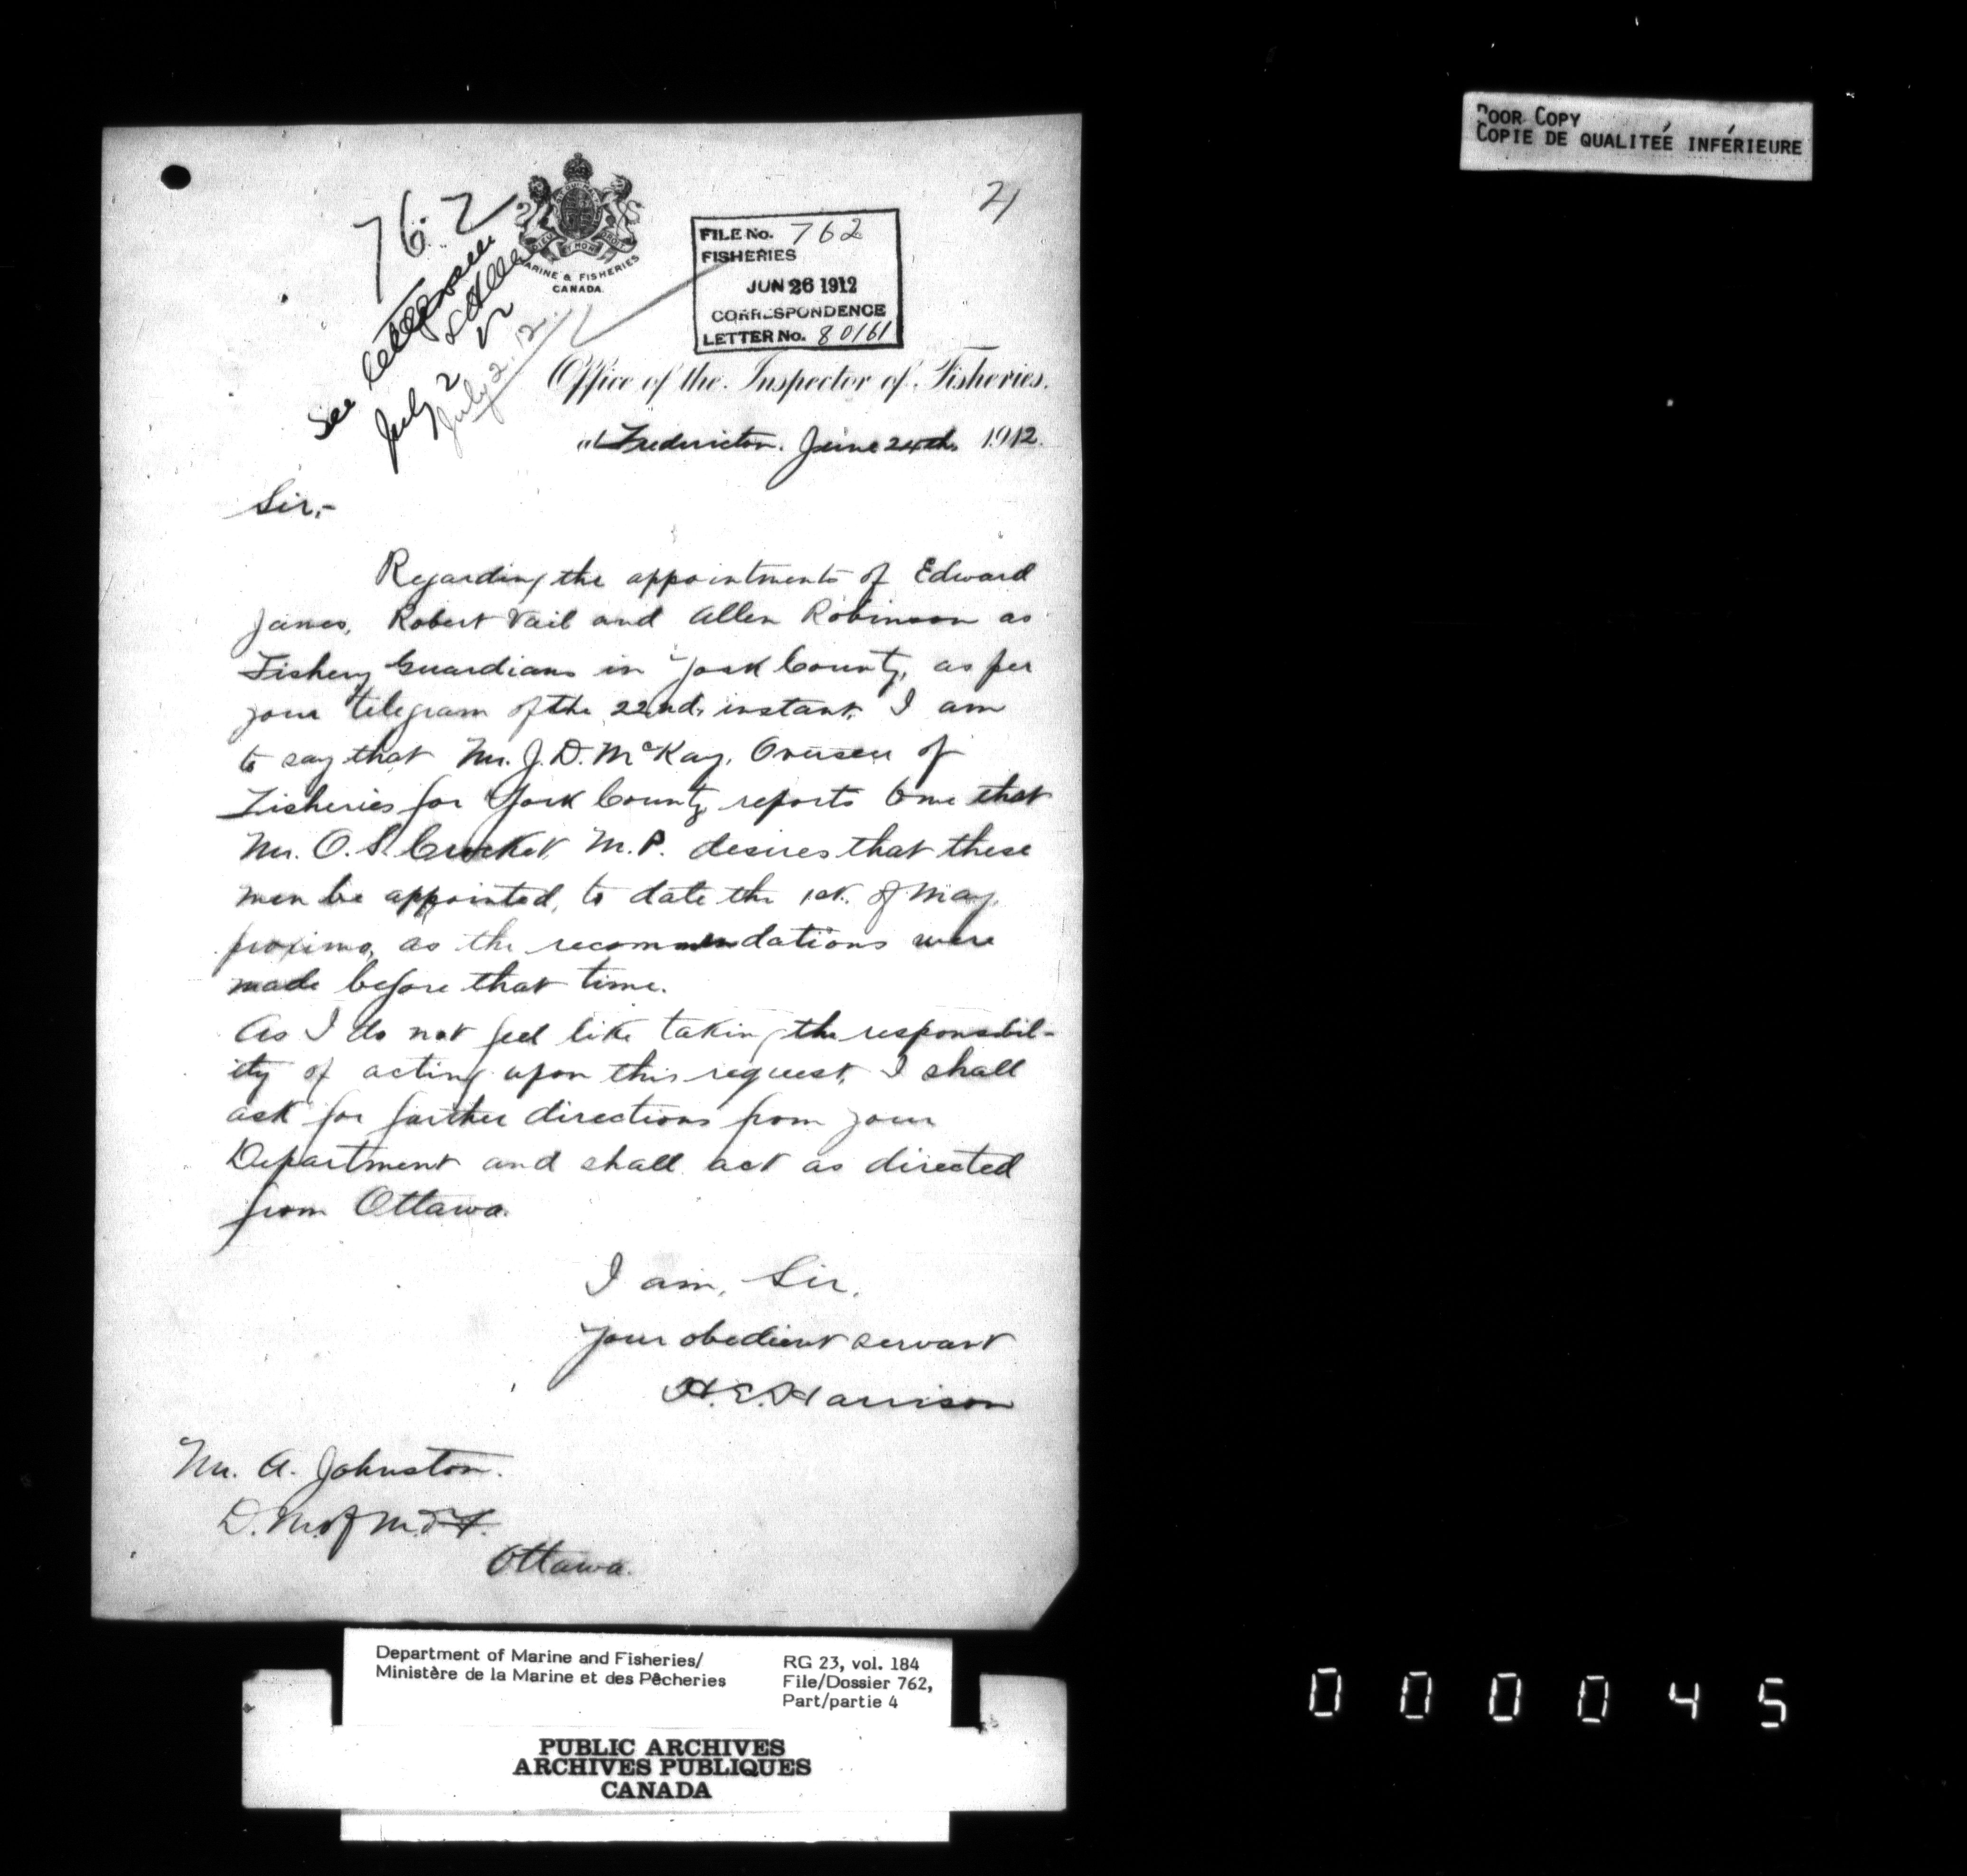 POOR COPY
COPIE DE QUALITEÉ INFÉRIEURE
21
76.2
DIEU ET MON DROIT
MARINE & FISHERIES
CANADA.
FILE No. 762
FISHERIES
JUN 26 1912
CORRESPONDENCE
LETTER No. 80161
See
July 2
July 2. 12.
Office of the Inspector of Fisheries.
at Fredericton. June 24th. 1912.
Sir,-
Regarding the appointments of Edward
James, Robert Vail and Allen Robinson as
Fishery Guardians in York County, as per
your telegram of the 22nd. instant, I am
to say that Mr. J. D. McKay, Overseer of
Fisheries for York County reports to me that
Mr. O. S. Crocket, M.P. desires that these
men be appointed, to date the 1st. of May,
proximo, as the recommendations were
made before that time.
As I do not feel like taking the responsibil-
ity of acting upon this request, I shall
ask for farther directions from your
Department and shall act as directed
from Ottawa.
I am, Sir,
Your obedient servant
H. E. Harrison
Mr. A. Johnston.
D. M. of M. & F.
Ottawa.
Department of Marine and Fisheries/
Ministère de la Marine et des Pêcheries
RG 23, vol. 184
File/Dossier 762,
Part/partie 4
PUBLIC ARCHIVES
ARCHIVES PUBLIQUES
CANADA
000045